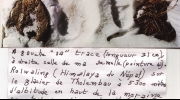 A gauche "sa" trace (longueur 31 cm),
à droite celle de ma semelle (pointure 42).
Rolwaling (Himalaya du Népal) sur
le glacier de Tholambau à 5 200 mètres
d'altitude en haut de la moraine